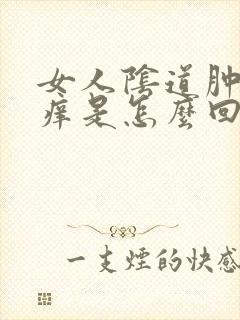 女人陰道肿
痒是怎麼回
一支煙的快感